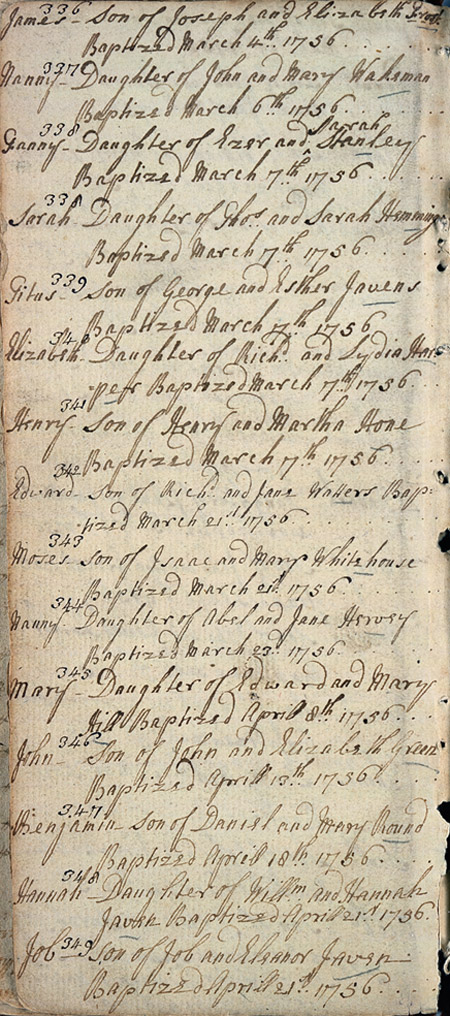 336
James - Son of Joseph and Elizabeth
Baptized March 4th. 1756
337
Nanny - Daughter of John and Mary Wakeman
Baptized March 6th. 1756
338 Sarah
Fanny - Daughter of Ezer and ^ Stanley
Baptized March 7th. 1756
338
Sarah - Daughter of Thos. and Sarah Hemmings
Baptized March 7th. 1756
339
Titus - Son of George and Esther Javens
Baptized March 7th. 1756
340
Elizabeth - Daughter of Richd. and Lydia Har-
-per Baptized March 7th. 1756
341
Henry - Son of Henry and Martha Hone
Baptized March 7th. 1756
342
Edward - Son of Richd. and Jane Watters Bap-
tized March 21st. 1756
343
Moses - Son of Isaac and Mary Whitehouse
Baptized March 21st. 1756
344
Nanny - Daughter of Abel and Jane Hervey
Baptized March 23d. 1756
345
Mary - Daughter of Edward and Mary
Baptized Aprill 8th. 1756
346
John - Son of John and Elizabeth Green
Baptized Aprill 13th. 1756
347
Benjamin - Son of Daniel and Mary Round
Baptized Aprill 18th. 1756
348
Hannah - Daughter of Willm. and Hannah
Javen Baptized Aprill 21st. 1756
349
Job - Son of Job and Eleanor Javen
Baptized Aprill 21st. 1756